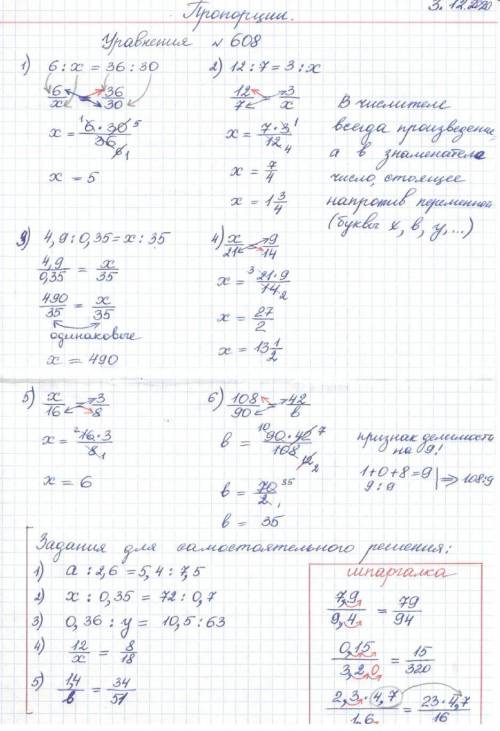 Пропорции.
3.12.2020
Уравнения № 608
1) 6 : x = 36 : 30
6/x = 36/30
x = 6·30/36
x = 5
2) 12 : 7 = 3 : x
12/7 = 3/x
x = 7·3/12
x = 7/4
x = 1 3/4
В числителе
всегда произведение,
а в знаменателе
число, стоящее
напротив переменной
(буквы x, в, y, ...)
3) 4,9 : 0,35 = x : 35
4,9/0,35 = x/35
490/35 = x/35
одинаковые
x = 490
4) x/21 = 9/14
x = 21·9/14
x = 27/2
x = 13 1/2
5) x/16 = 3/8
x = 16·3/8
x = 6
6) 108/90 = 42/в
в = 90·42/108
в = 70/2
в = 35
признак делимости
на 9!
1+0+8=9
9:9 ⇒ 108:9
Задания для самостоятельного решения:
1) a : 2,6 = 5,4 : 7,5
2) x : 0,35 = 72 : 0,7
3) 0,36 : y = 10,5 : 63
4) 12/x = 8/18
5) 1,4/в = 34/51
шпаргалка
7,9/9,4 = 79/94
0,15/3,20 = 15/320
2,3·4,7/1,6 = 23·4,7/16